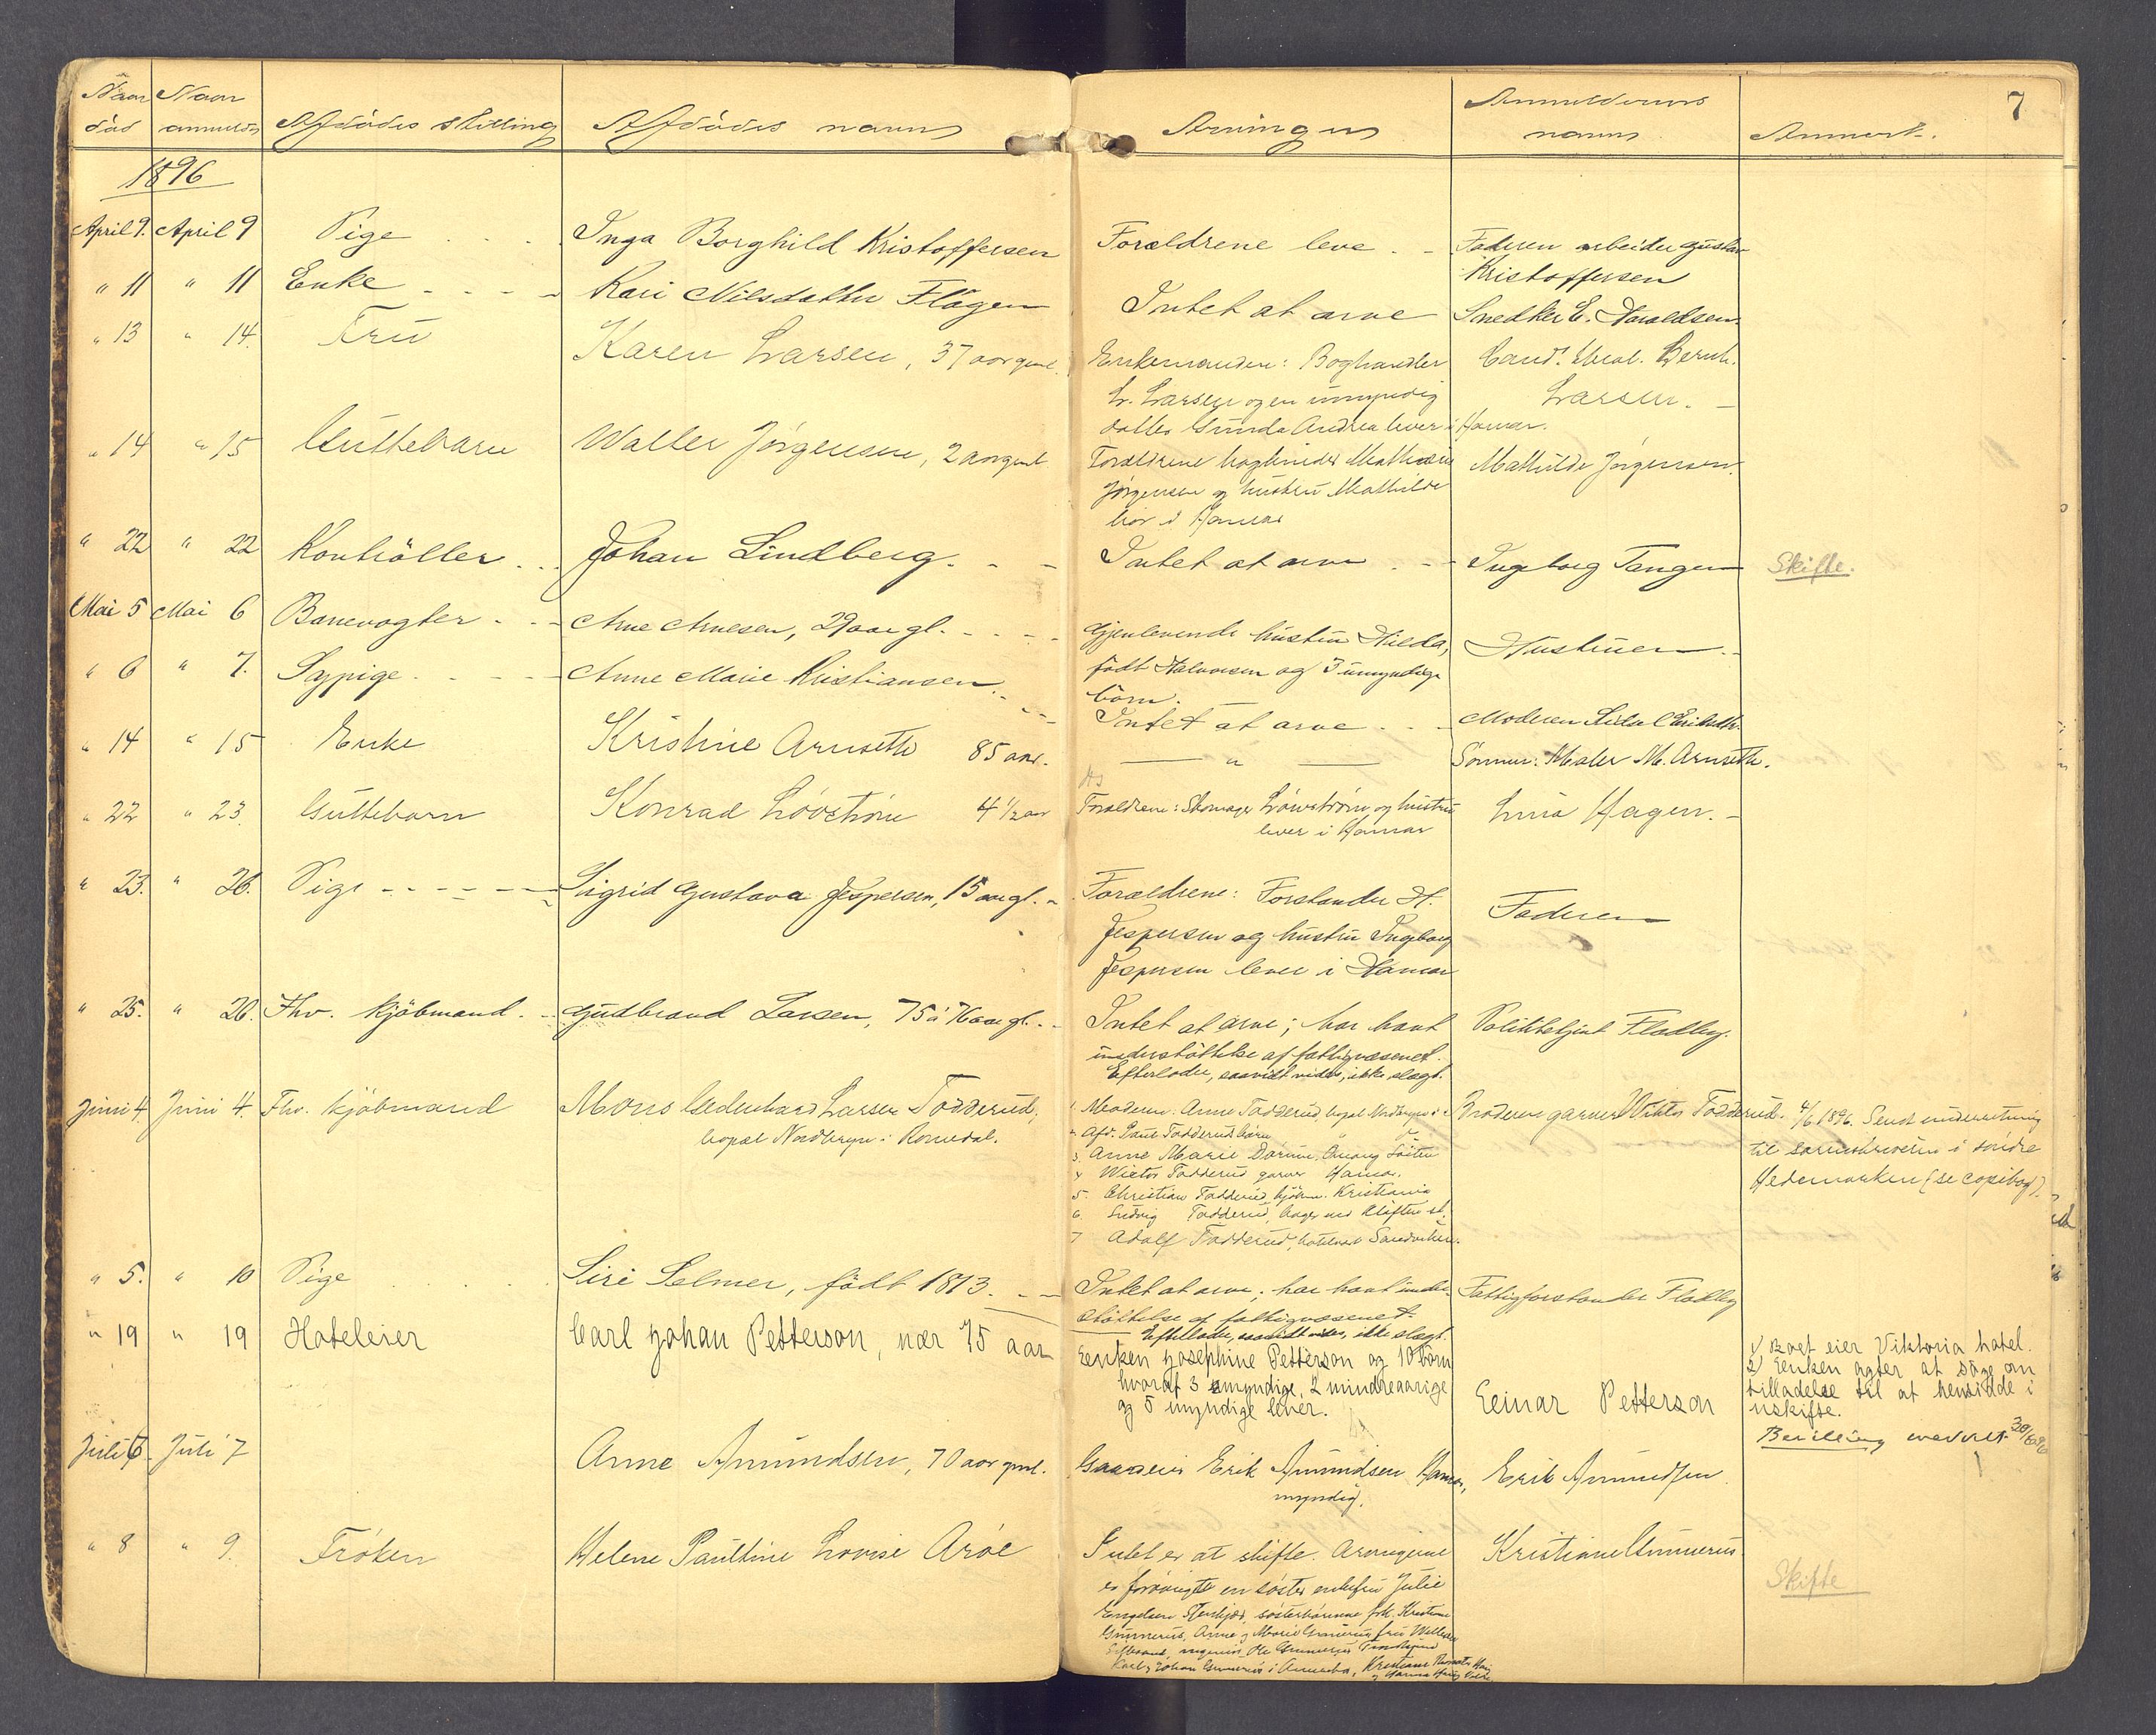 7
Naar død
Naar anmeldt
Afdødes stilling
Afdødes navn
Arvinger
Anmelderens navn
Anmerk.
1896
April 9. April 9 Pige Inga Borghild Kristoffersen Forældrene leve Faderen arbeider Gustav
Kristoffersen
" 11 " 11 Enke Kari Nilsdatter Flagen Intet at arve Snedker E. Haraldsen.
" 13 " 14. Fru Karen Larsen, 37 aar gml. Enkemanden: Boghandler Cand. theol. Bernh.
L. Larsen og en umyndig Larsen.
datter Gunda Andrea lever i Hamar.
" 14 " 15 Guttebarn Walter Jørgensen, 2 aar gml. Forældrene bogbinder Mathias Mathilde Jørgensen.
Jørgensen og hustru Mathilde
bor i Hamar
" 22 " 22 Kontrollør Johan Lindberg. Intet at arve Ingeborg Tangen Skifte.
Mai 5 Mai 6 Banevogter Arne Arnesen, 29 aar gl. Gjenlevende hustru Hilda, Hustruen
født Halvorsen og 3 umyndige
børn.
" 6 " 7. Sypige Anne Marie Kristiansen. Intet at arve Moderen
" 14 " 15 Enke Kristine Arneseth 85 aar. — " — Sønnen: Maler M. Arneseth.
" 22 " 23. Guttebarn Konrad Løvstrøm 4 1/2 aar Forældrene: Skomager Løvstrøm og hustru Lina Hagen.
lever i Hamar
" 23. " 26. Pige Sigrid Gustava Jespersen, 15 aar gl. Forældrene: Forstander H. Faderen
Jespersen og hustru Ingeborg
Jespersen lever i Hamar
" 25. " 26. Fhv. kjøbmand. Gudbrand Larsen, 75 à 76 aar gl. Intet at arve; har havt Politibetjent Fladby.
understøttelse af fattigvæsenet.
Efterlader, saavidt vides, ikke slægt.
Juni 4. Juni 4. Fhv. kjøbmand Mons Larsen Todderud, 1. Moderen: Anne Todderud, bopæl Nordbryn i Broderen garver Wiktor Todderud. 4/6 1896. Sendt underretning
bopæl Nordbryn i Romedal. 2. Afd. Todderuds børn til sorenskriveren i søndre
3. Anne Marie Løiten Hedemarken (se copibog).
4 Wictor Todderud garver Hamar.
5. Christian Todderud, kjøbm. Kristiania
6. Ludvig Todderud, ved Kløften st.
7 Adolf Todderud, Sandviken.
" 5. " 10 Pige Siri Selmer, født 1813. Intet at arve; har havt under- Fattigforstander Fladby
støttelse af fattigvæsenet.
Efterlader, saavidt vides, ikke slægt.
" 19 " 19 Hoteleier Carl Johan Petterson, nær 75 aar Enken Josephine Petterson og 10 børn Einar Petterson 1) Boet eier Viktoria hotel.
hvoraf 3 myndige, 2 mindreaarige 2) Enken agter at søge om
og 5 umyndige lever. tilladelse til at hensidde i
uskifte.
Bevilling 30/6 96
Juli 6 Juli 7 Anne Amundsen, 70 aar gml. Gaardeier Erik Amundsen Hamar, Erik Amundsen
myndig.
" 8 " 9. Frøken Helene Paulline Lovise Arøe Intet er at skifte. Arvingerne Kristiane Gunnerus Skifte
er forøvrigt en søster enkefru Julie
Engelsen Stenkjær, søsterbørnene frk. Kristiane
Gunnerus, Anne og Marie Gunnerus, fru
ingeniør Ole Gunnerus Trondhjem
Karl Johan Gunnerus i Amerika, Kristiane
og Hanna